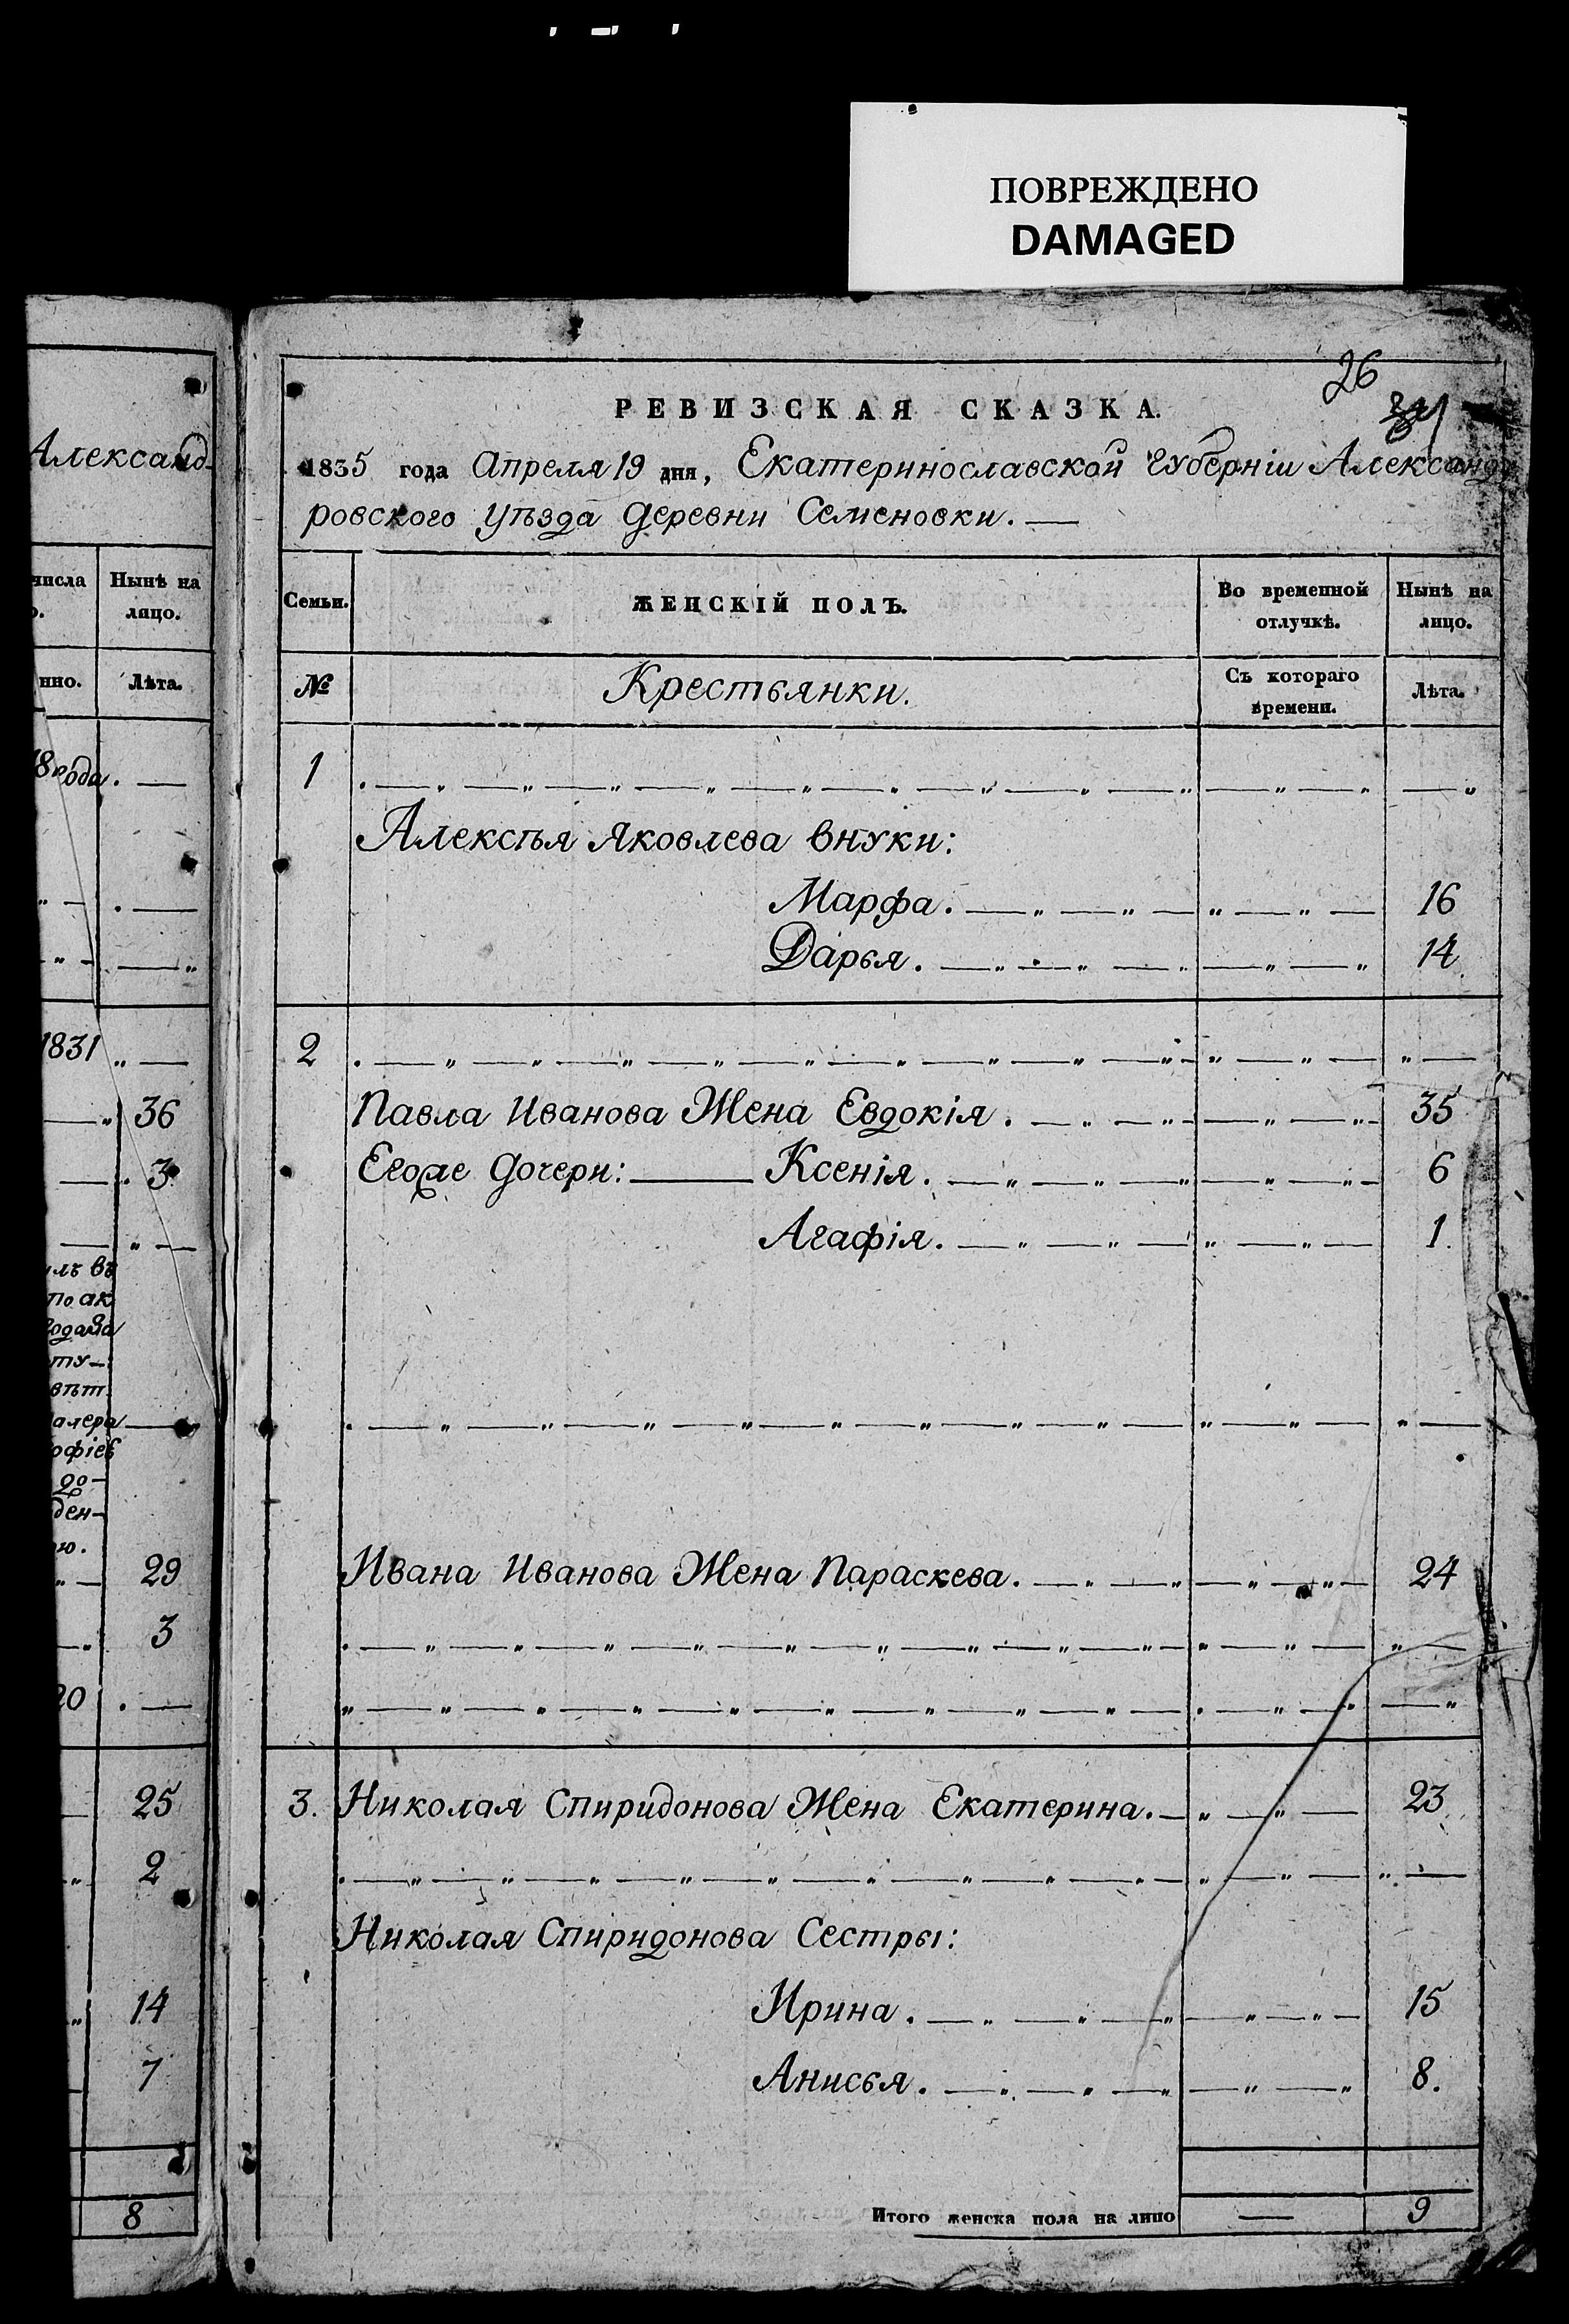 ПОВРЕЖДЕНО
DAMAGED
Александ-
числа
Нынѣ на
лицо.
нно.
Лѣта.
18 года. —
1831 „ —
„ 36
— . 3
— „ —
лъ въ
по ак
годама
ту-
вѣт
алера
офіев
до-
ден-
ю.
„ — 29
— „ 3
20 . —
25
„ 2
„ 14
7
8
26
РЕВИЗСКАЯ СКАЗКА.
1835 года Апреля 19 дня, Екатеринославской Губерніи Александ-
ровского Уѣзда деревни Семеновки. —
Семьи. ЖЕНСКІЙ ПОЛЪ. Во временной отлучкѣ. Нынѣ на лицо.
№ Крестьянки. Съ котораго времени. Лѣта.
1
Алексѣя Яковлева внуки:
Марфа. 16
Дарья. 14
2
Павла Иванова Жена Евдокія. 35
Егоже дочери: Ксенія. 6
Агафія. 1.
Ивана Иванова Жена Параскева. 24
3. Николая Спиридонова Жена Екатерина. 23
Николая Спиридонова Сестры:
Ирина. 15
Анисья. 8.
Итого женска пола на лицо — 9